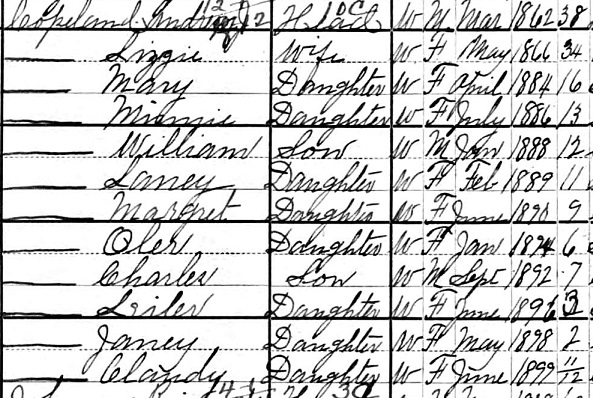 Copeland Andrew Head W M Mar 1862 38
Lizzie Wife W F May 1866 34
Mary Daughter W F April 1884 16
Minnie Daughter W F July 1886 13
William Son W M Jan 1888 12
Laney Daughter W F Feb 1889 11
Margret Daughter W F June 1890 9
Oler Daughter W F Jan 1894 6
Charles Son W M Sept 1892 7
Leiler Daughter W F June 1896 3
Janey Daughter W F May 1898 2
Claudy Daughter W F June 1899 11/12